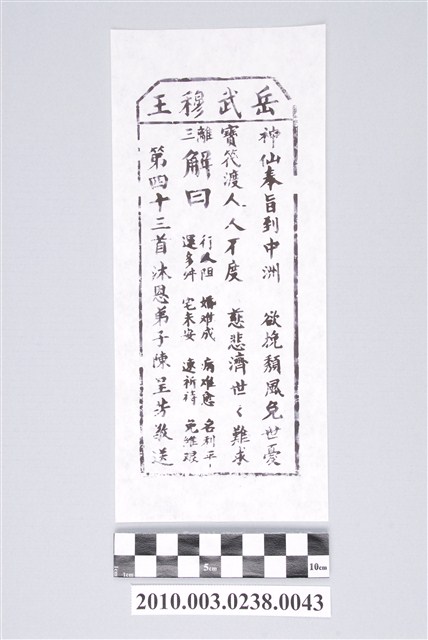 岳武穆王
神仙奉旨到中洲　欲挽頹風免世憂
寶筏渡人人不度　慈悲濟世々難求
離三
解曰
行人阻　婚难成　病难愈　名利平
運多舛　宅未安　速祈待　免維艰
第四十三首沐恩弟子陳呈芳敬送
1cm 5cm 10cm
2010.003.0238.0043